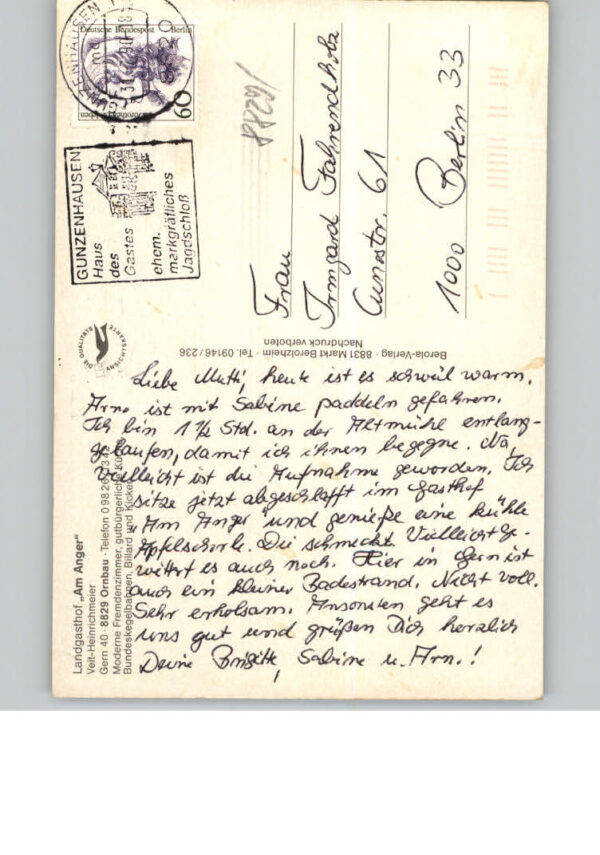 Liebe Mutti, heute ist es schwül warm.
Arno ist mit Sabine paddeln gefahren.
Ich bin 1 ½ Std. an der Altmühle entlang-
gelaufen, damit ich ihnen begegne. Na,
vielleicht ist die Aufnahme geworden. Ich
sitze jetzt abgeschlafft im Gasthof
"Am Anger" und genieße eine kühle
Apfelschorle. Die schmeckt. Vielleicht ge-
wittert es auch noch. Hier in Gern ist
auch ein kleiner Badestrand. Nicht voll.
Sehr erholsam. Ansonsten geht es
uns gut und grüßen Dich herzlich
Deine Brigitte, Sabine u. Arn.!
Frau
Irmgard Fahrendholz
Cunostr. 61
1000 Berlin 33
Landgasthof „Am Anger"
Veit-Heinrichmeier
Gern 40 · 8829 Ornbau · Telefon 0 98 26
Moderne Fremdenzimmer, gutbürgerliche
Bundeskegelbahnen, Billard und Kicker
Berola-Verlag · 8831 Markt Berolzheim · Tel. 09146/236
Nachdruck verboten
DIE QUALITÄTS
ANSICHTSKARTE
GUNZENHAUSEN
Haus
des
Gastes
ehem.
markgräfliches
Jagdschloß
GUNZENHAUSEN
8820
Deutsche Bundespost Berlin
60